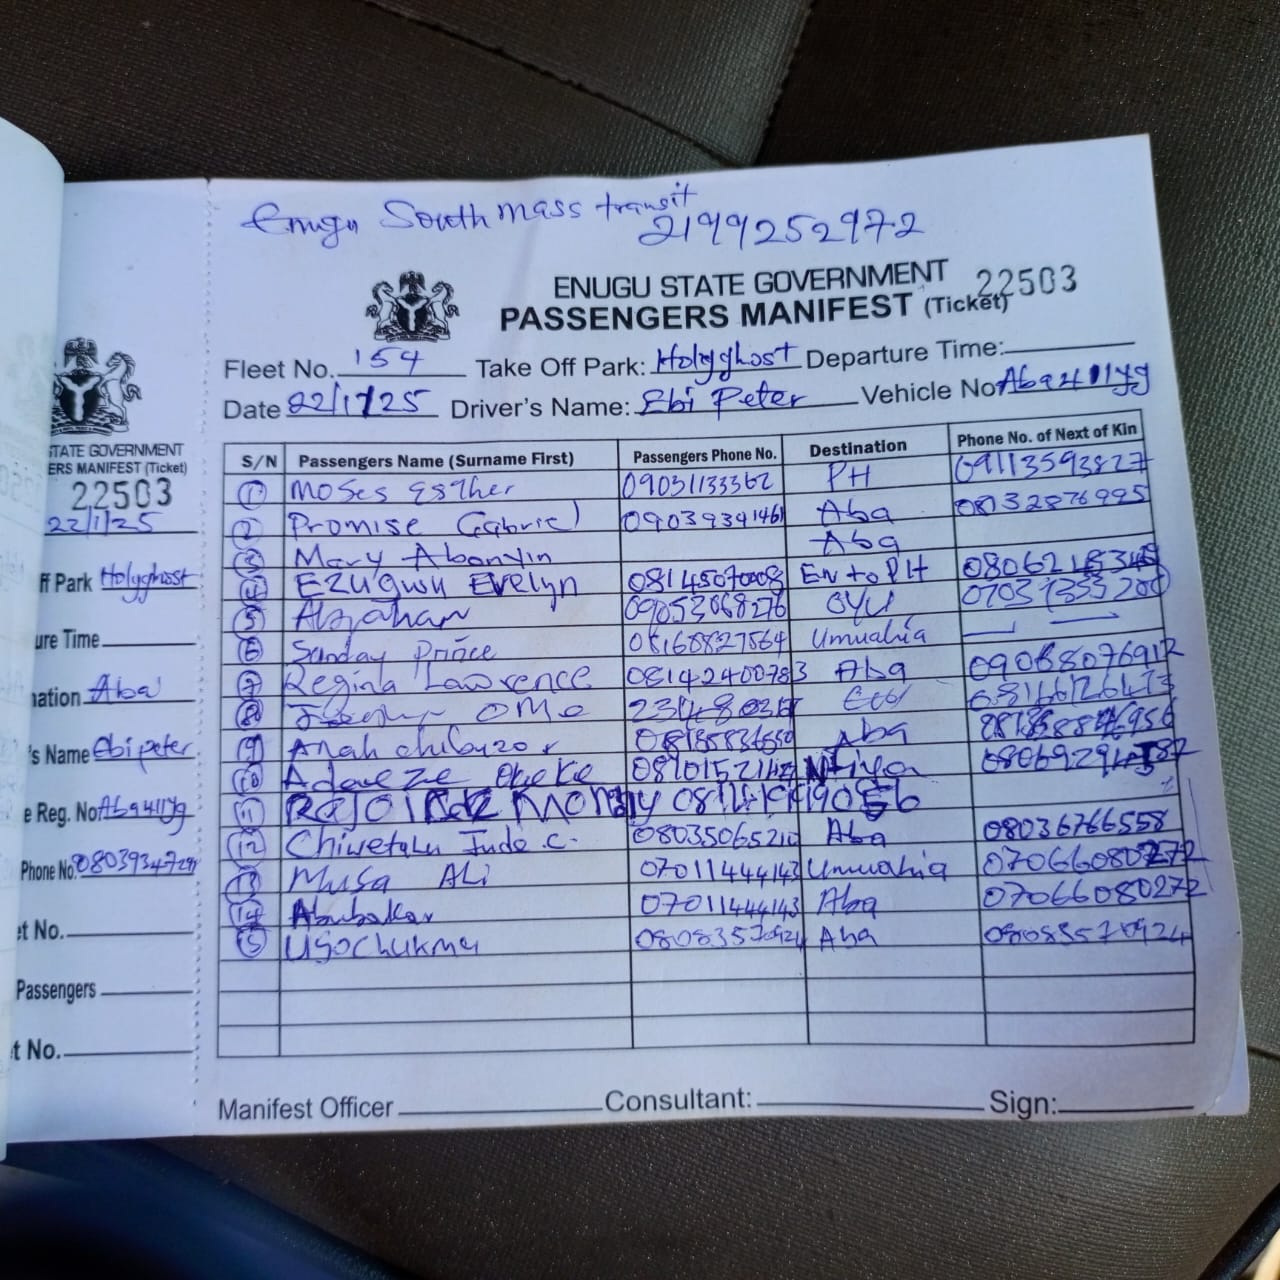 Enugu South mass transit
2199252972
ENUGU STATE GOVERNMENT
22503
PASSENGERS MANIFEST (Ticket)
Fleet No. 154 Take Off Park: Holyghost Departure Time:
Date 22/1/25 Driver's Name: Ebi Peter Vehicle No
S/N Passengers Name (Surname First) Passengers Phone No. Destination Phone No. of Next of Kin
1 Moses Esther 09031133362 PH 09113593827
2 Promise Gabriel 09039341461 Aba 08132876995
3 Mary Abanyin Aba
4 Ezugwu Evelyn 08145070008 En to PH
5 09053068276 OYU
6 Sunday Prince 08160827564 Umuahia
7 Regina Lawrence 08142400783 Aba
8 Omo
9 Anah Aba
10 Adaeze Okeke
11
12 Chiwetalu Jude .C. 08035065210 Aba 08036766558
13 Musa Ali 07011444143 Umuahia 07066080272
14 Abubakar 07011444143 Aba 07066080272
15 Ugochukwu 08083570924 Aba 08083570924
Manifest Officer Consultant: Sign:
STATE GOVERNMENT
ERS MANIFEST (Ticket)
22503
22/1/25
ff Park Holyghost
ure Time
nation Aba
's Name Ebi peter
e Reg. No
Phone No.
et No.
Passengers
t No.